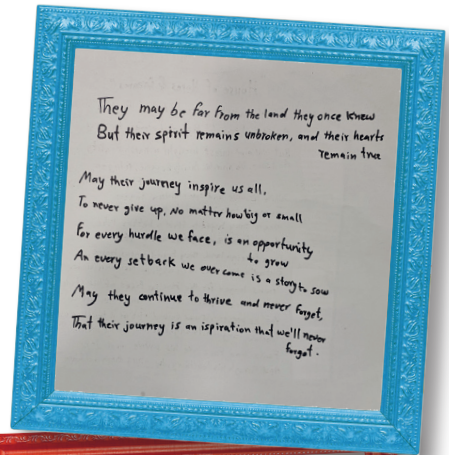 They may be far from the land they once knew
But their spirit remains unbroken, and their hearts
remain true
May their journey inspire us all,
To never give up, no matter how big or small
For every hurdle we face, is an opportunity
to grow
An every setback we overcome is a story to sow
May they continue to thrive and never forget,
That their journey is an ispiration that we'll never
forget.